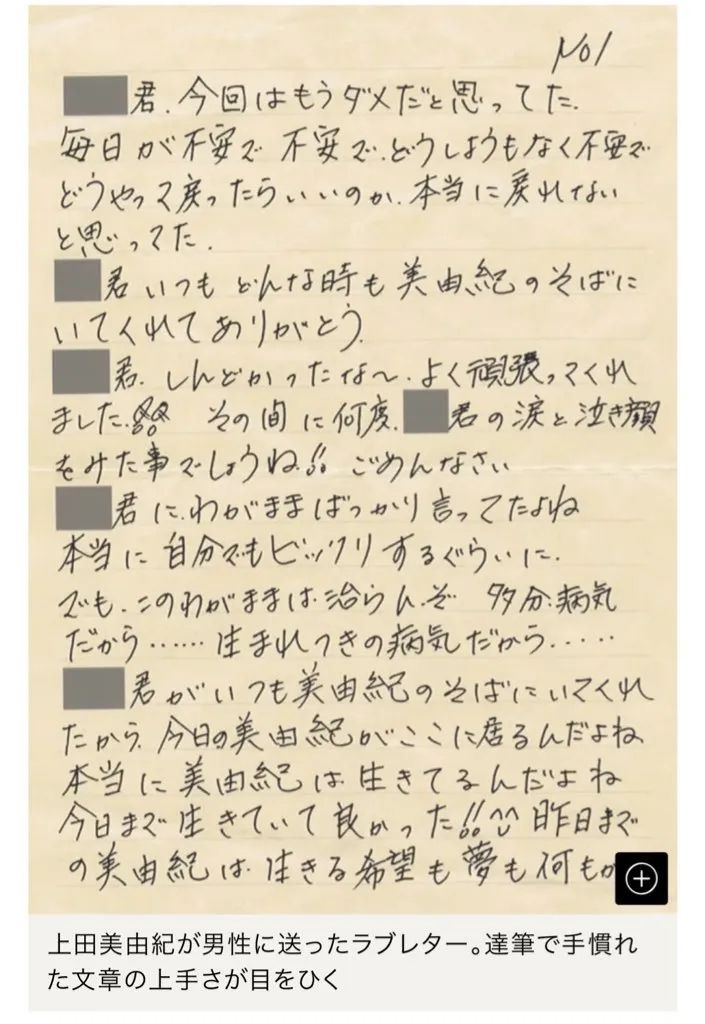 No1
君.今回はもうダメだと思ってた.
毎日が不安で 不安で.どうしようもなく不安で
どうやって戻ったらいいのか.本当に戻れない
と思ってた.
君いつも どんな時も美由紀のそばに
いてくれてありがとう.
君.しんどかったな〜.よく頑張ってくれ
ました. その間に何度.君の涙と泣き顔
をみた事でしょうね!! ごめんなさい
君に.わがままばっかり言ってたよね
本当に自分でもビックリするぐらいに.
でも.このわがままは.治らんぞ 多分.病気
だから……生まれつきの病気だから.....
君がいつも美由紀のそばにいてくれ
たから.今日の美由紀がここに居るんだよね
本当に美由紀は生きてるんだよね
今日まで生きていて良かった!!^^ 昨日まで
の美由紀は.生きる希望も夢も何もか
上田美由紀が男性に送ったラブレター。達筆で手慣れ
た文章の上手さが目をひく